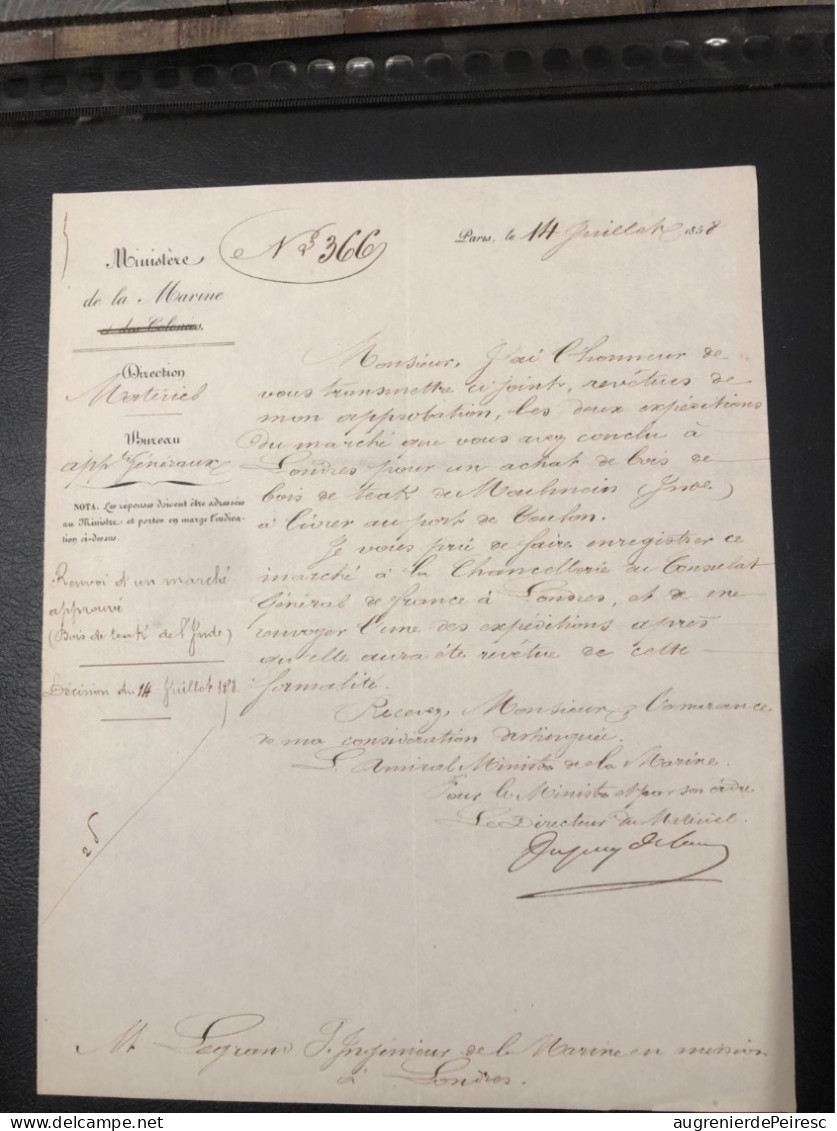 Ministère
de la Marine
et des Colonies.
Direction
Matériel
Bureau
appts Généraux
NOTA. Les réponses doivent être adressées
au Ministre et porter en marge l'indica-
tion ci-dessus.
Renvoi d'un marché
approuvé
(Bois de teak de l'Inde)
Décision du 14 Juillet 1858.
28
No 366
Paris, le 14 Juillet 1858
Monsieur, J'ai l'honneur de
vous transmettre ci joint, revêtues de
mon approbation, les deux expéditions
du marché que vous avez conclu à
Londres pour un achat de bois de
bois de teak de Maulmein (Inde)
à livrer au port de Toulon.
Je vous prie de faire enregistrer ce
marché à la Chancellerie du Consulat
Général de france à Londres, et de me
renvoyer l'une des expéditions après
qu'elle aura été revêtue de cette
formalité.
Recevez, Monsieur, l'assurance
de ma considération distinguée.
L'Amiral Ministre de la Marine.
Pour le Ministre et par son ordre
Le Directeur du Matériel.
Dupuy de Lome
Mr Legrand S. Ingénieur de la Marine en mission
à Londres.
augrenierdePeiresc